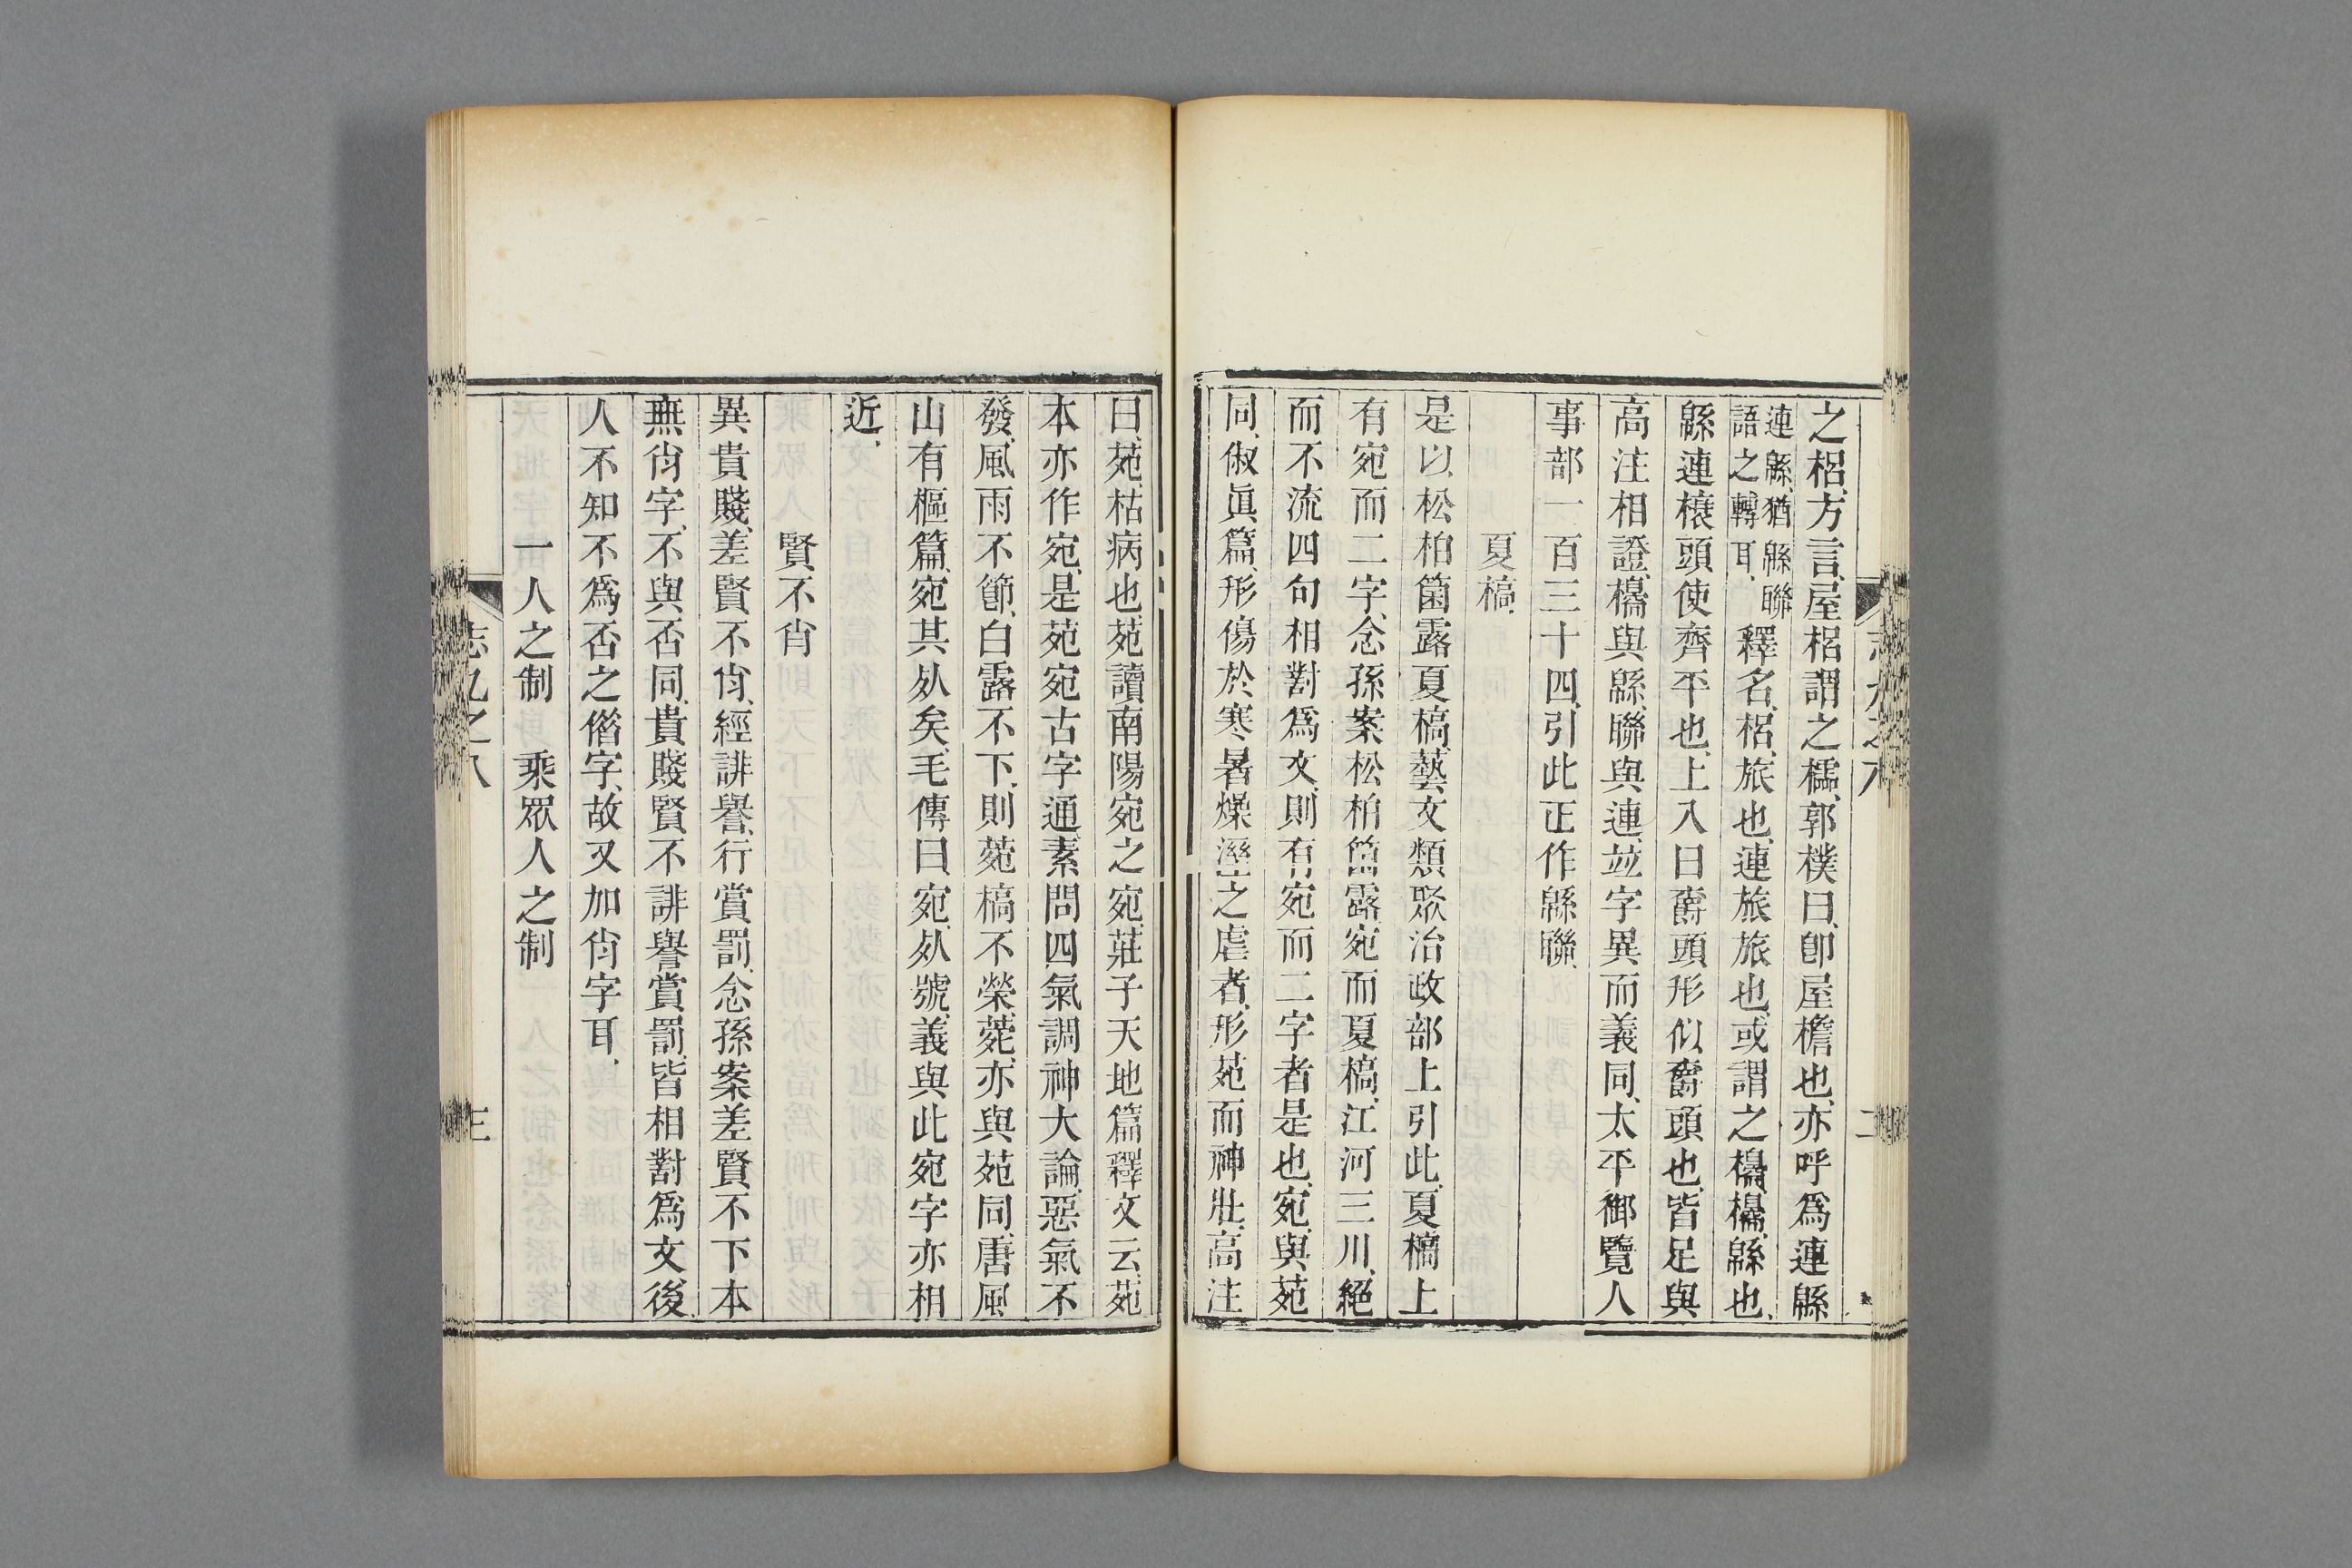 之梠、方言、屋梠謂之櫺、郭樸曰、卽屋檐也、亦呼爲連緜
連緜、猶緜聯
語之轉耳、
釋名、梠、旅也、連旅旅也、或謂之櫋、櫋、緜也、
緜連榱頭使齊平也、上入曰爵頭形似爵頭也、皆足與
高注相證、櫋與緜、聯與連、竝字異而義同、太平御覽人
事部一百三十四、引此正作緜聯、
夏槁、
是以松柏箘露夏槁、藝文類聚治政部上引此、夏槁上
有宛而二字、念孫案松柏箘露、宛而夏槁、江河三川、絕
而不流四句相對爲文、則有宛而二字者是也、宛、與苑
同、俶眞篇、形傷於寒暑燥溼之虐者、形苑而神壯、高注
曰、苑、枯病也、苑讀南陽宛之宛、莊子天地篇釋文云、苑
本亦作宛、是苑宛古字通、素問四氣調神大論、惡氣不
發、風雨不節、白露不下、則菀槁不榮、菀、亦與苑同、唐風
山有樞篇、宛其死矣、毛傳曰、宛、死號、義與此宛字亦相
近、
賢不肖
異貴賤、差賢不肖、經誹譽、行賞罰、念孫案差賢不下本
無肖字、不與否同、貴賤賢不誹譽賞罰、皆相對爲文、後
人不知不爲否之借字、故又加肖字耳、
一人之制 乘眾人之制
志九之八